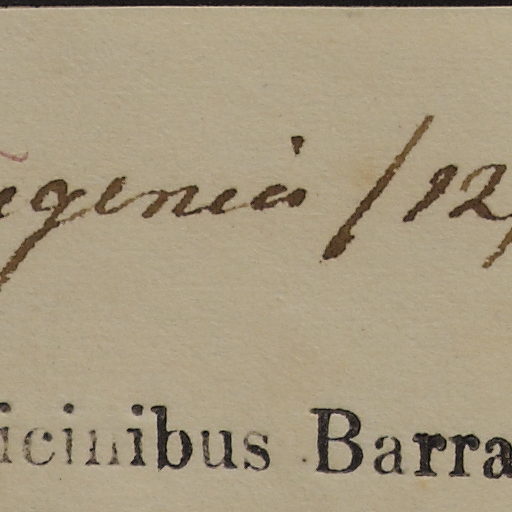 ugenia /12/
icinibus Barra